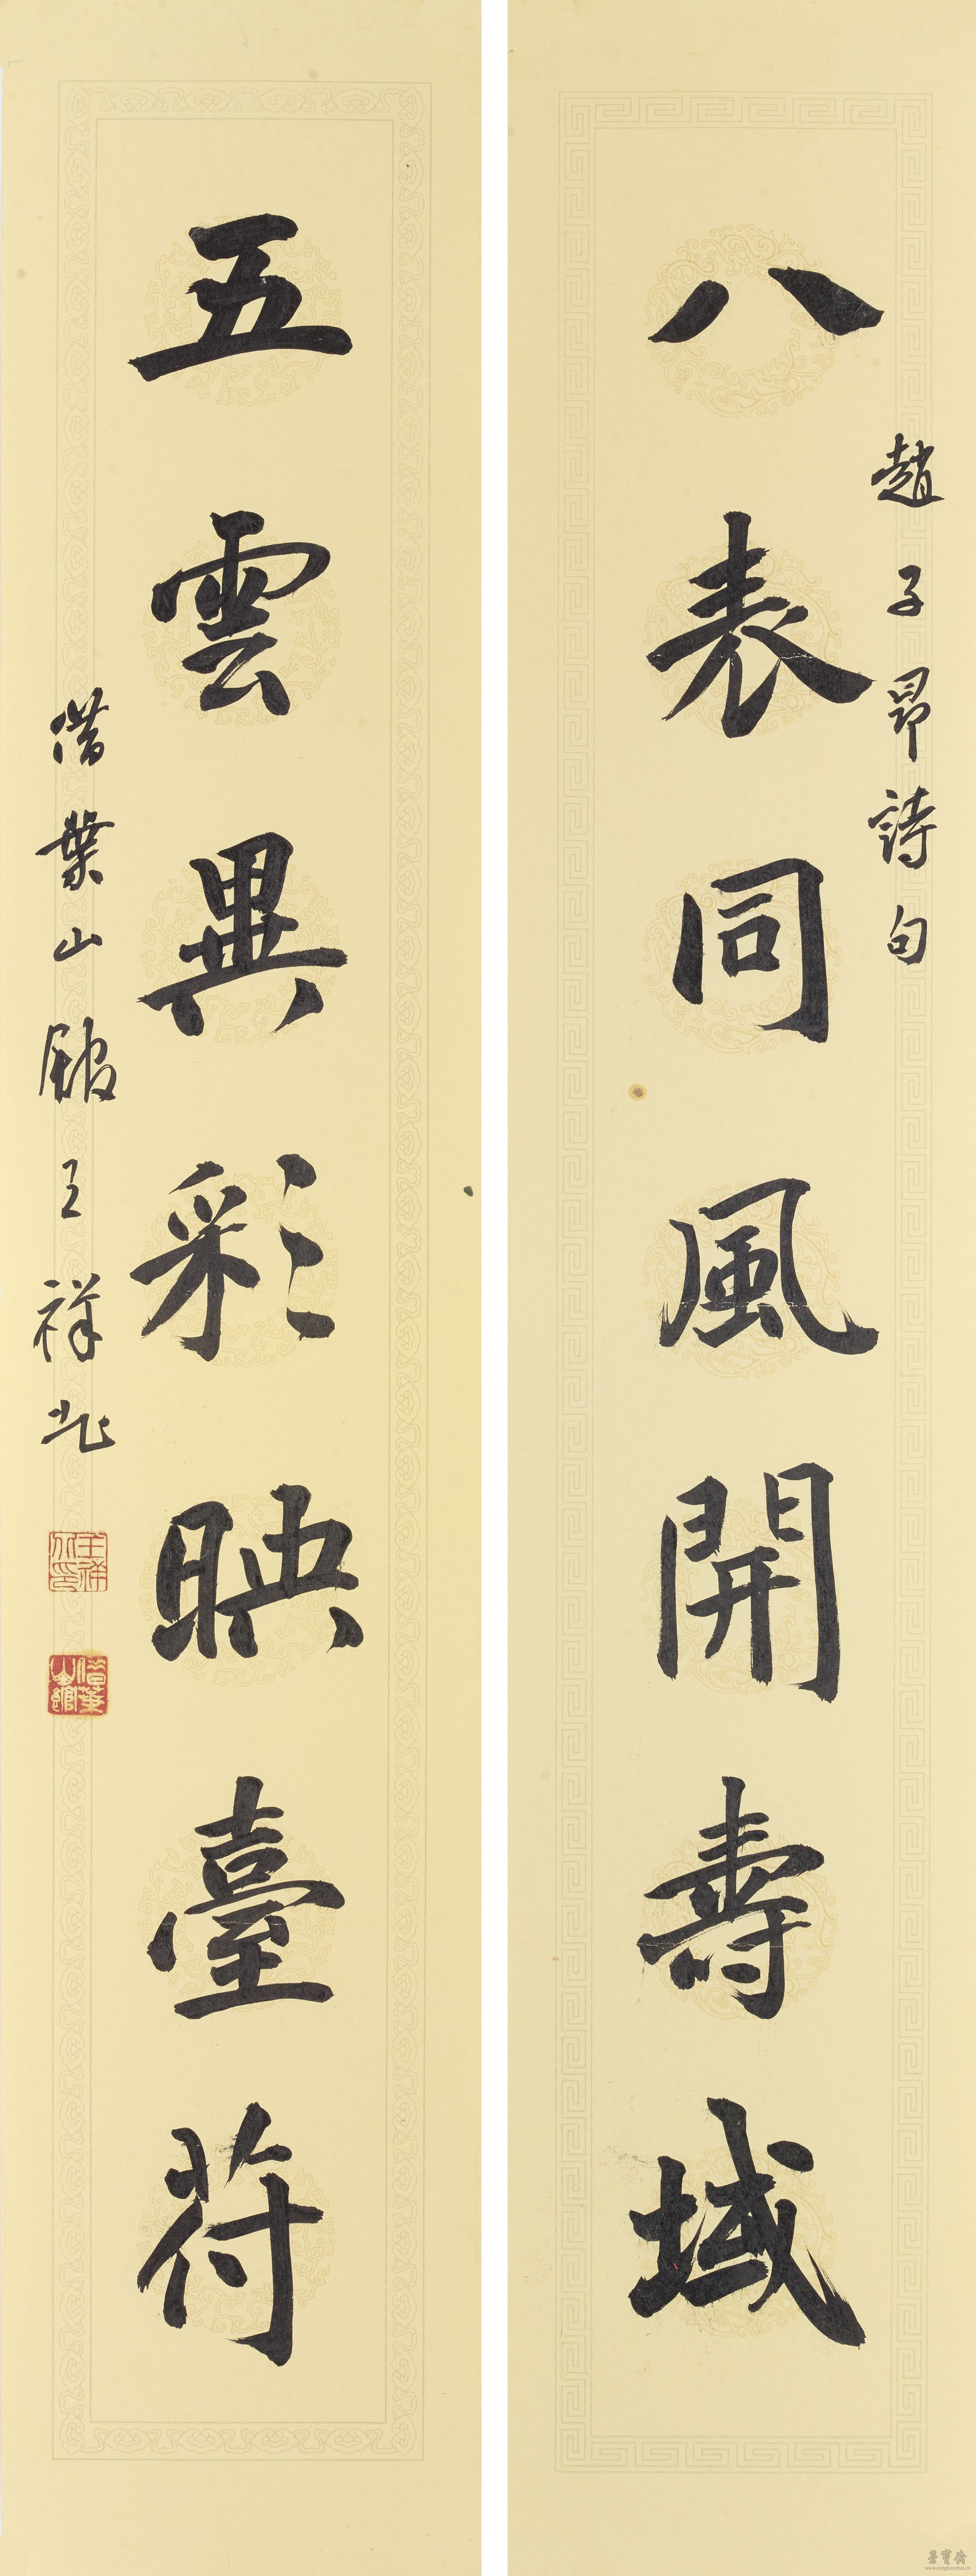 八表同風開壽域
趙子昂詩句
五雲異彩映臺符
借葉山館王祥北
王祥北印
借葉山館
榮寶齋